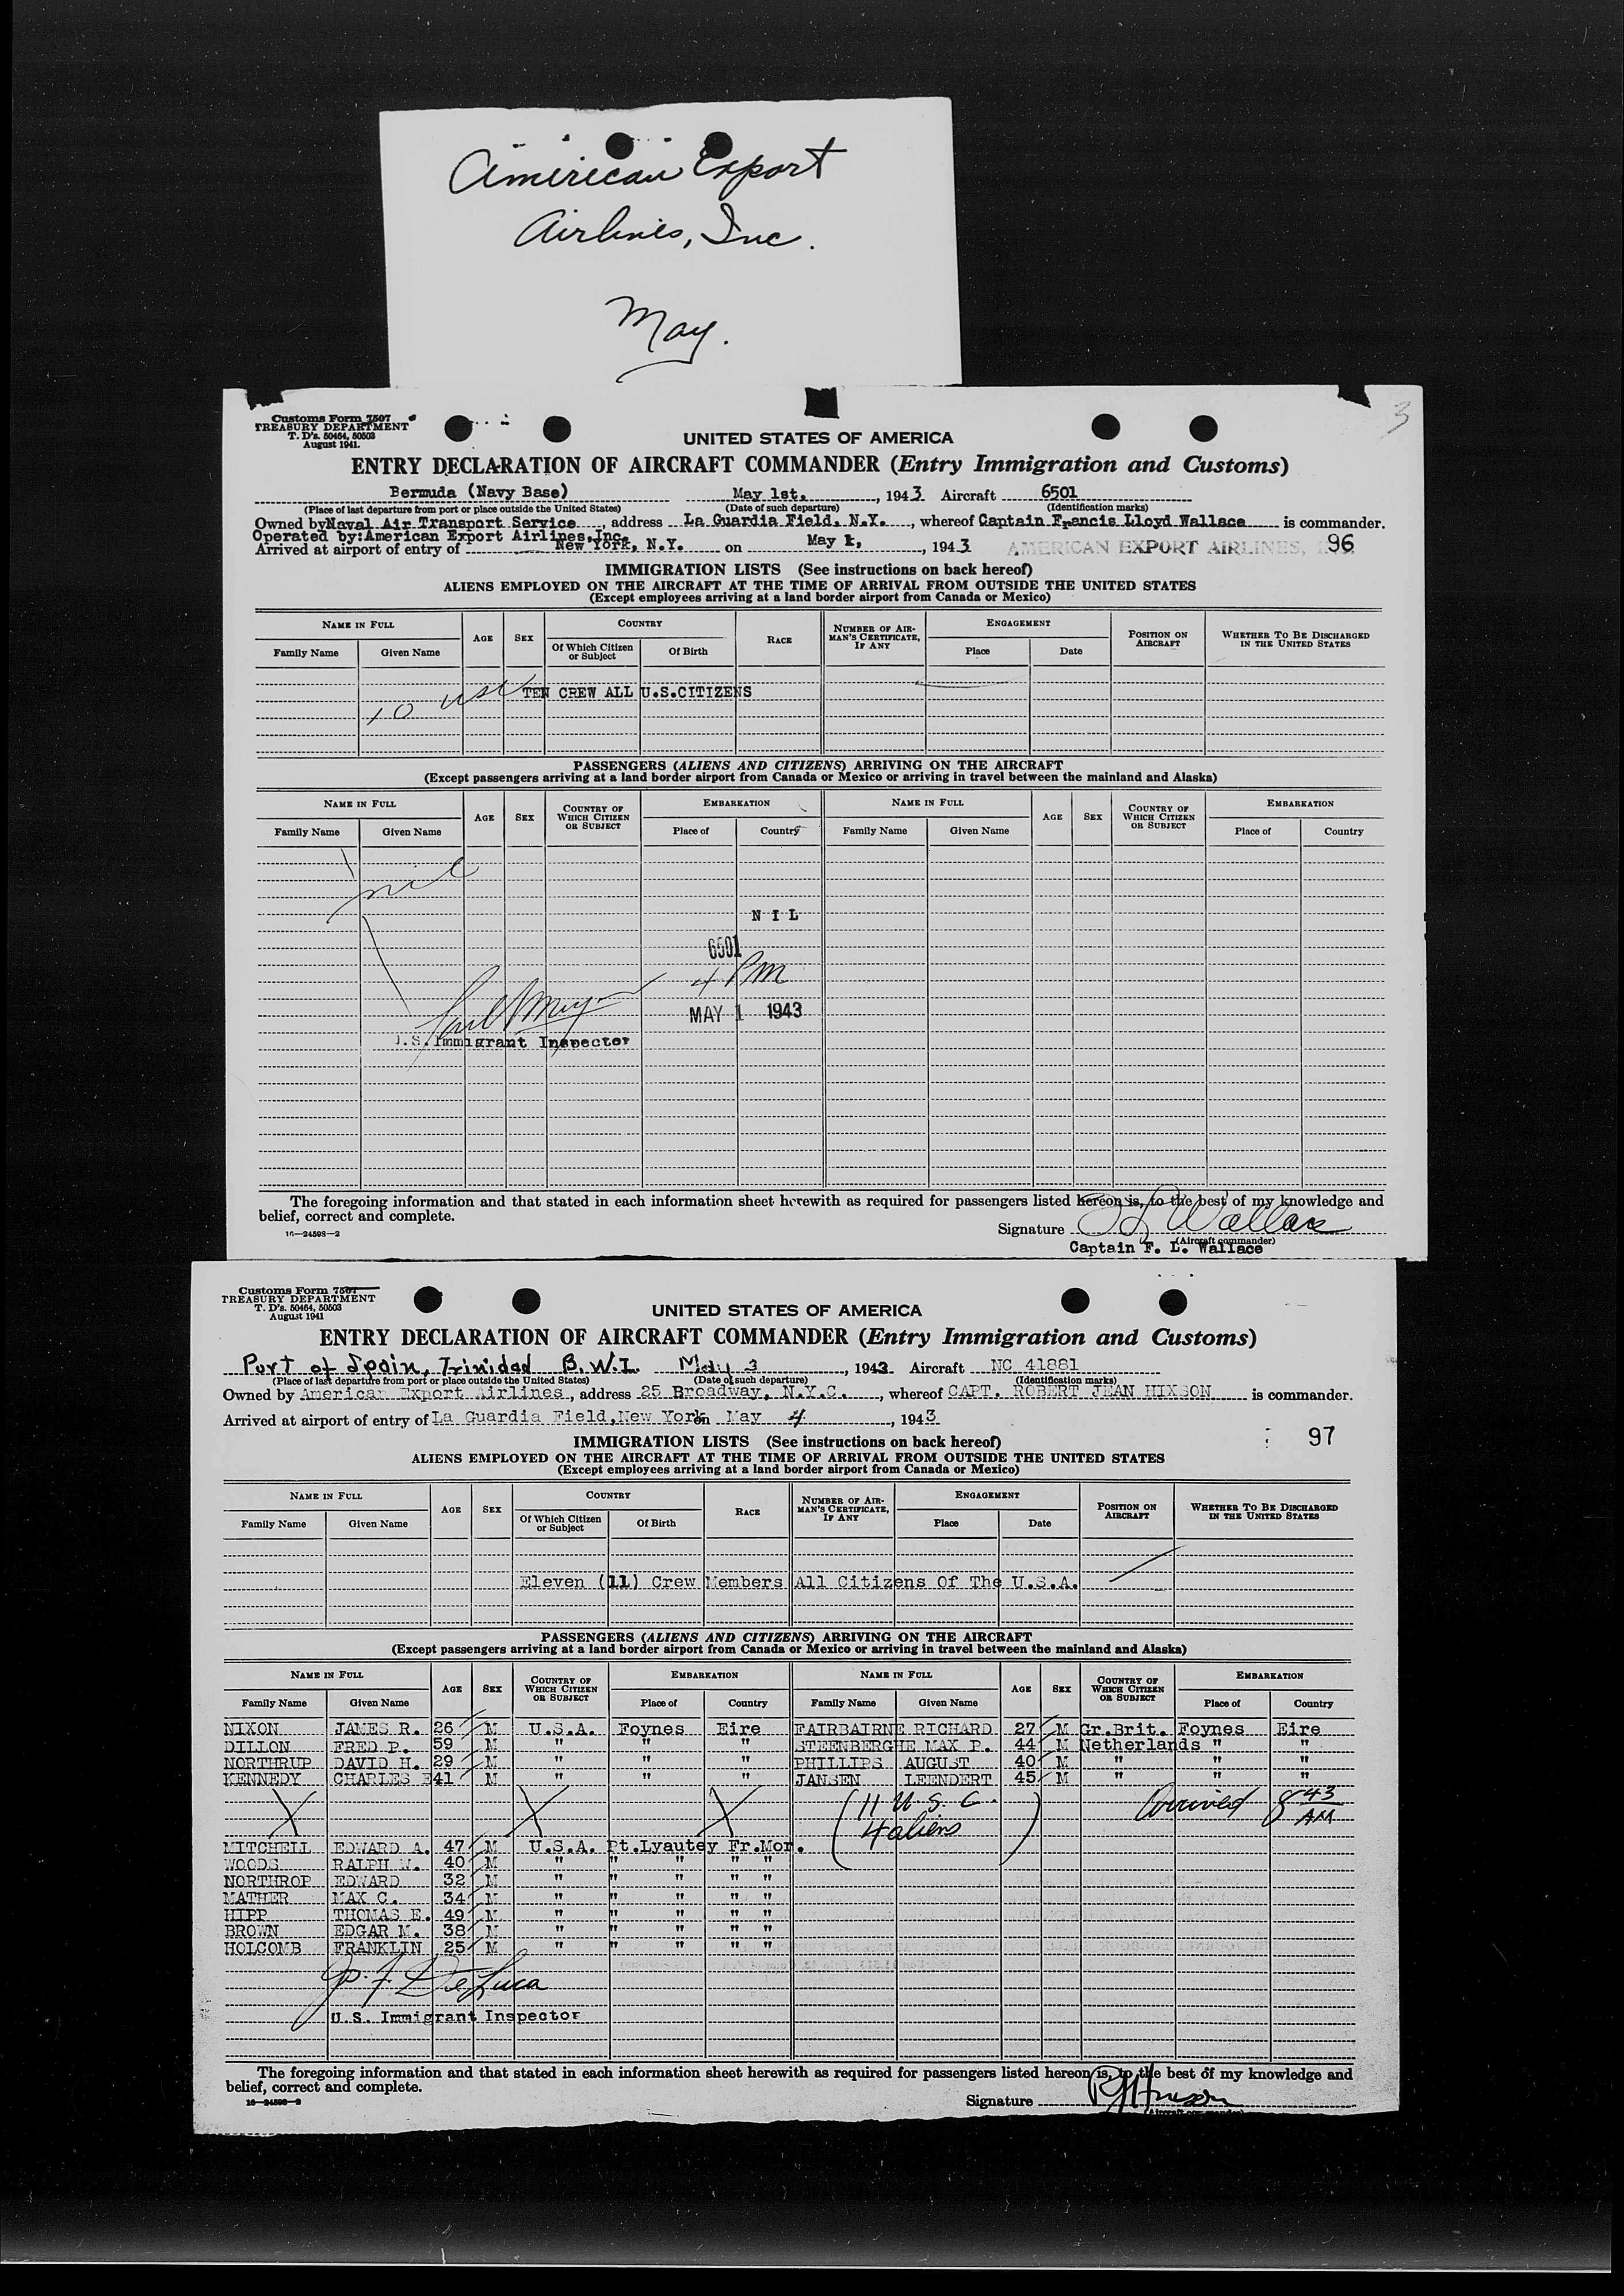 American Export
Airlines, Inc.
May.
3
Customs Form 7507
TREASURY DEPARTMENT
T. D's. 50464, 50503
August 1941.
UNITED STATES OF AMERICA
ENTRY DECLARATION OF AIRCRAFT COMMANDER (Entry Immigration and Customs)
Bermuda (Navy Base) May 1st. , 1943 Aircraft 6501
(Place of last departure from port or place outside the United States) (Date of such departure) (Identification marks)
Owned by Naval Air Transport Service , address La Guardia Field, N.Y. , whereof Captain Francis Lloyd Wallace is commander.
Operated by: American Export Airlines, Inc.
Arrived at airport of entry of New York, N.Y. on May 1, , 1943 AMERICAN EXPORT AIRLINES, 96
IMMIGRATION LISTS (See instructions on back hereof)
ALIENS EMPLOYED ON THE AIRCRAFT AT THE TIME OF ARRIVAL FROM OUTSIDE THE UNITED STATES
(Except employees arriving at a land border airport from Canada or Mexico)
NAME IN FULL AGE SEX COUNTRY RACE NUMBER OF AIRMAN'S CERTIFICATE, IF ANY ENGAGEMENT POSITION ON AIRCRAFT WHETHER TO BE DISCHARGED IN THE UNITED STATES
Family Name Given Name Of Which Citizen or Subject Of Birth Place Date
10 usc TEN CREW ALL U.S.CITIZENS
PASSENGERS (ALIENS AND CITIZENS) ARRIVING ON THE AIRCRAFT
(Except passengers arriving at a land border airport from Canada or Mexico or arriving in travel between the mainland and Alaska)
NAME IN FULL AGE SEX COUNTRY OF WHICH CITIZEN OR SUBJECT EMBARKATION NAME IN FULL AGE SEX COUNTRY OF WHICH CITIZEN OR SUBJECT EMBARKATION
Family Name Given Name Place of Country Family Name Given Name Place of Country
nil
N I L
6501
4 PM
MAY 1 1943
U.S. Immigrant Inspector
The foregoing information and that stated in each information sheet herewith as required for passengers listed hereon is, to the best of my knowledge and
belief, correct and complete.
Signature F L Wallace
16—24598—2
(Aircraft commander)
Captain F. L. Wallace
Customs Form 7507
TREASURY DEPARTMENT
T. D's. 50464, 50503
August 1941
UNITED STATES OF AMERICA
ENTRY DECLARATION OF AIRCRAFT COMMANDER (Entry Immigration and Customs)
Port of Spain, Trinidad B.W.I. May 3 , 1943 Aircraft NC 41881
(Place of last departure from port or place outside the United States) (Date of such departure) (Identification marks)
Owned by American Export Airlines , address 25 Broadway, N.Y.C. , whereof CAPT. ROBERT JEAN HIXSON is commander.
Arrived at airport of entry of La Guardia Field, New York on May 4 , 1943
97
IMMIGRATION LISTS (See instructions on back hereof)
ALIENS EMPLOYED ON THE AIRCRAFT AT THE TIME OF ARRIVAL FROM OUTSIDE THE UNITED STATES
(Except employees arriving at a land border airport from Canada or Mexico)
NAME IN FULL AGE SEX COUNTRY RACE NUMBER OF AIRMAN'S CERTIFICATE, IF ANY ENGAGEMENT POSITION ON AIRCRAFT WHETHER TO BE DISCHARGED IN THE UNITED STATES
Family Name Given Name Of Which Citizen or Subject Of Birth Place Date
Eleven (11) Crew Members All Citizens Of The U.S.A.
PASSENGERS (ALIENS AND CITIZENS) ARRIVING ON THE AIRCRAFT
(Except passengers arriving at a land border airport from Canada or Mexico or arriving in travel between the mainland and Alaska)
NAME IN FULL AGE SEX COUNTRY OF WHICH CITIZEN OR SUBJECT EMBARKATION NAME IN FULL AGE SEX COUNTRY OF WHICH CITIZEN OR SUBJECT EMBARKATION
Family Name Given Name Place of Country Family Name Given Name Place of Country
NIXON JAMES R. 26 M U.S.A. Foynes Eire FAIRBAIRNE RICHARD 27 M Gr.Brit. Foynes Eire
DILLON FRED P. 59 M " " " STEENBERGHE MAX P. 44 M Netherlands " "
NORTHRUP DAVID H. 29 M " " " PHILLIPS AUGUST 40 M " " "
KENNEDY CHARLES F 41 M " " " JANSEN LEENDERT 45 M " " "
(11 U.S.C. Arrived 8 43 AM
4 aliens)
MITCHELL EDWARD A. 47 M U.S.A. Pt.Lyautey Fr.Mor.
WOODS RALPH W. 40 M " " " " "
NORTHROP EDWARD 32 M " " " " "
MATHER MAX C. 34 M " " " " "
HIPP THOMAS E. 49 M " " " " "
BROWN EDGAR M. 38 M " " " " "
HOLCOMB FRANKLIN 25 M " " " " "
P. F. DeLuca
U.S. Immigrant Inspector
The foregoing information and that stated in each information sheet herewith as required for passengers listed hereon is, to the best of my knowledge and
belief, correct and complete.
16—24598—2
Signature RJHixson
(Aircraft commander)